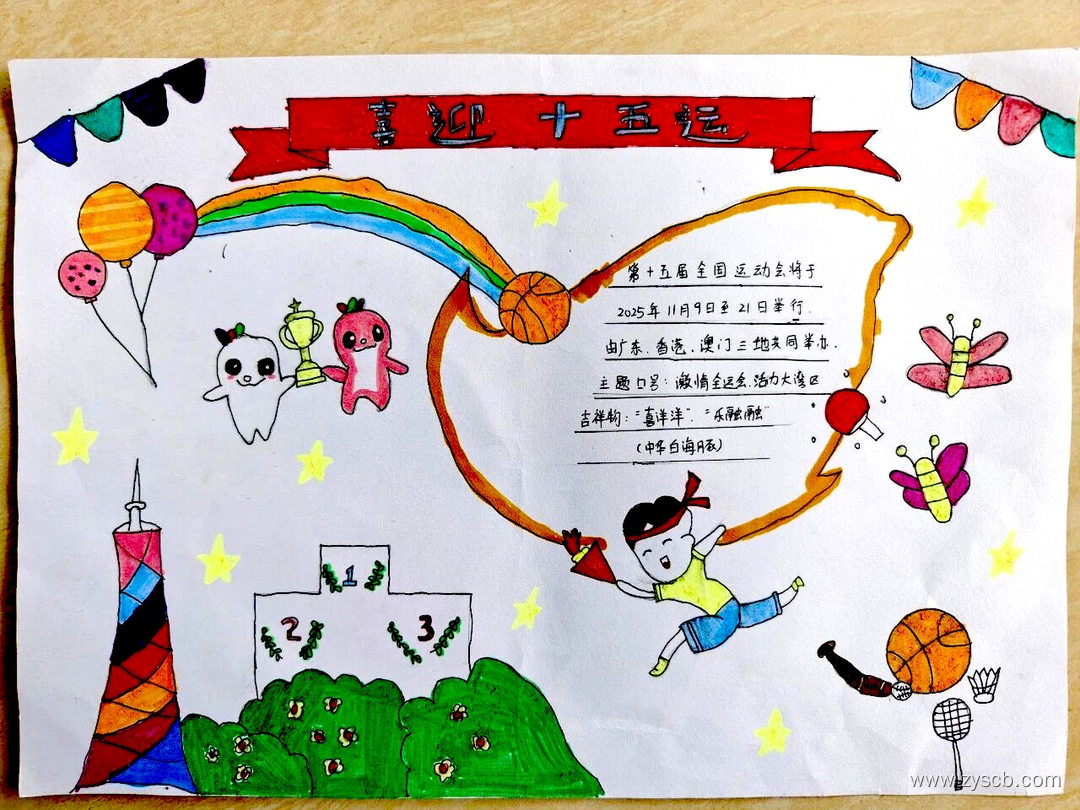 喜迎十五运
第十五届全国运动会将于
2025年11月9日至21日举行.
由广东、香港、澳门三地共同举办.
主题口号：激情全运会,活力大湾区
吉祥物："喜洋洋"."乐融融"
(中华白海豚)
1
2 3
www.zyscb.com